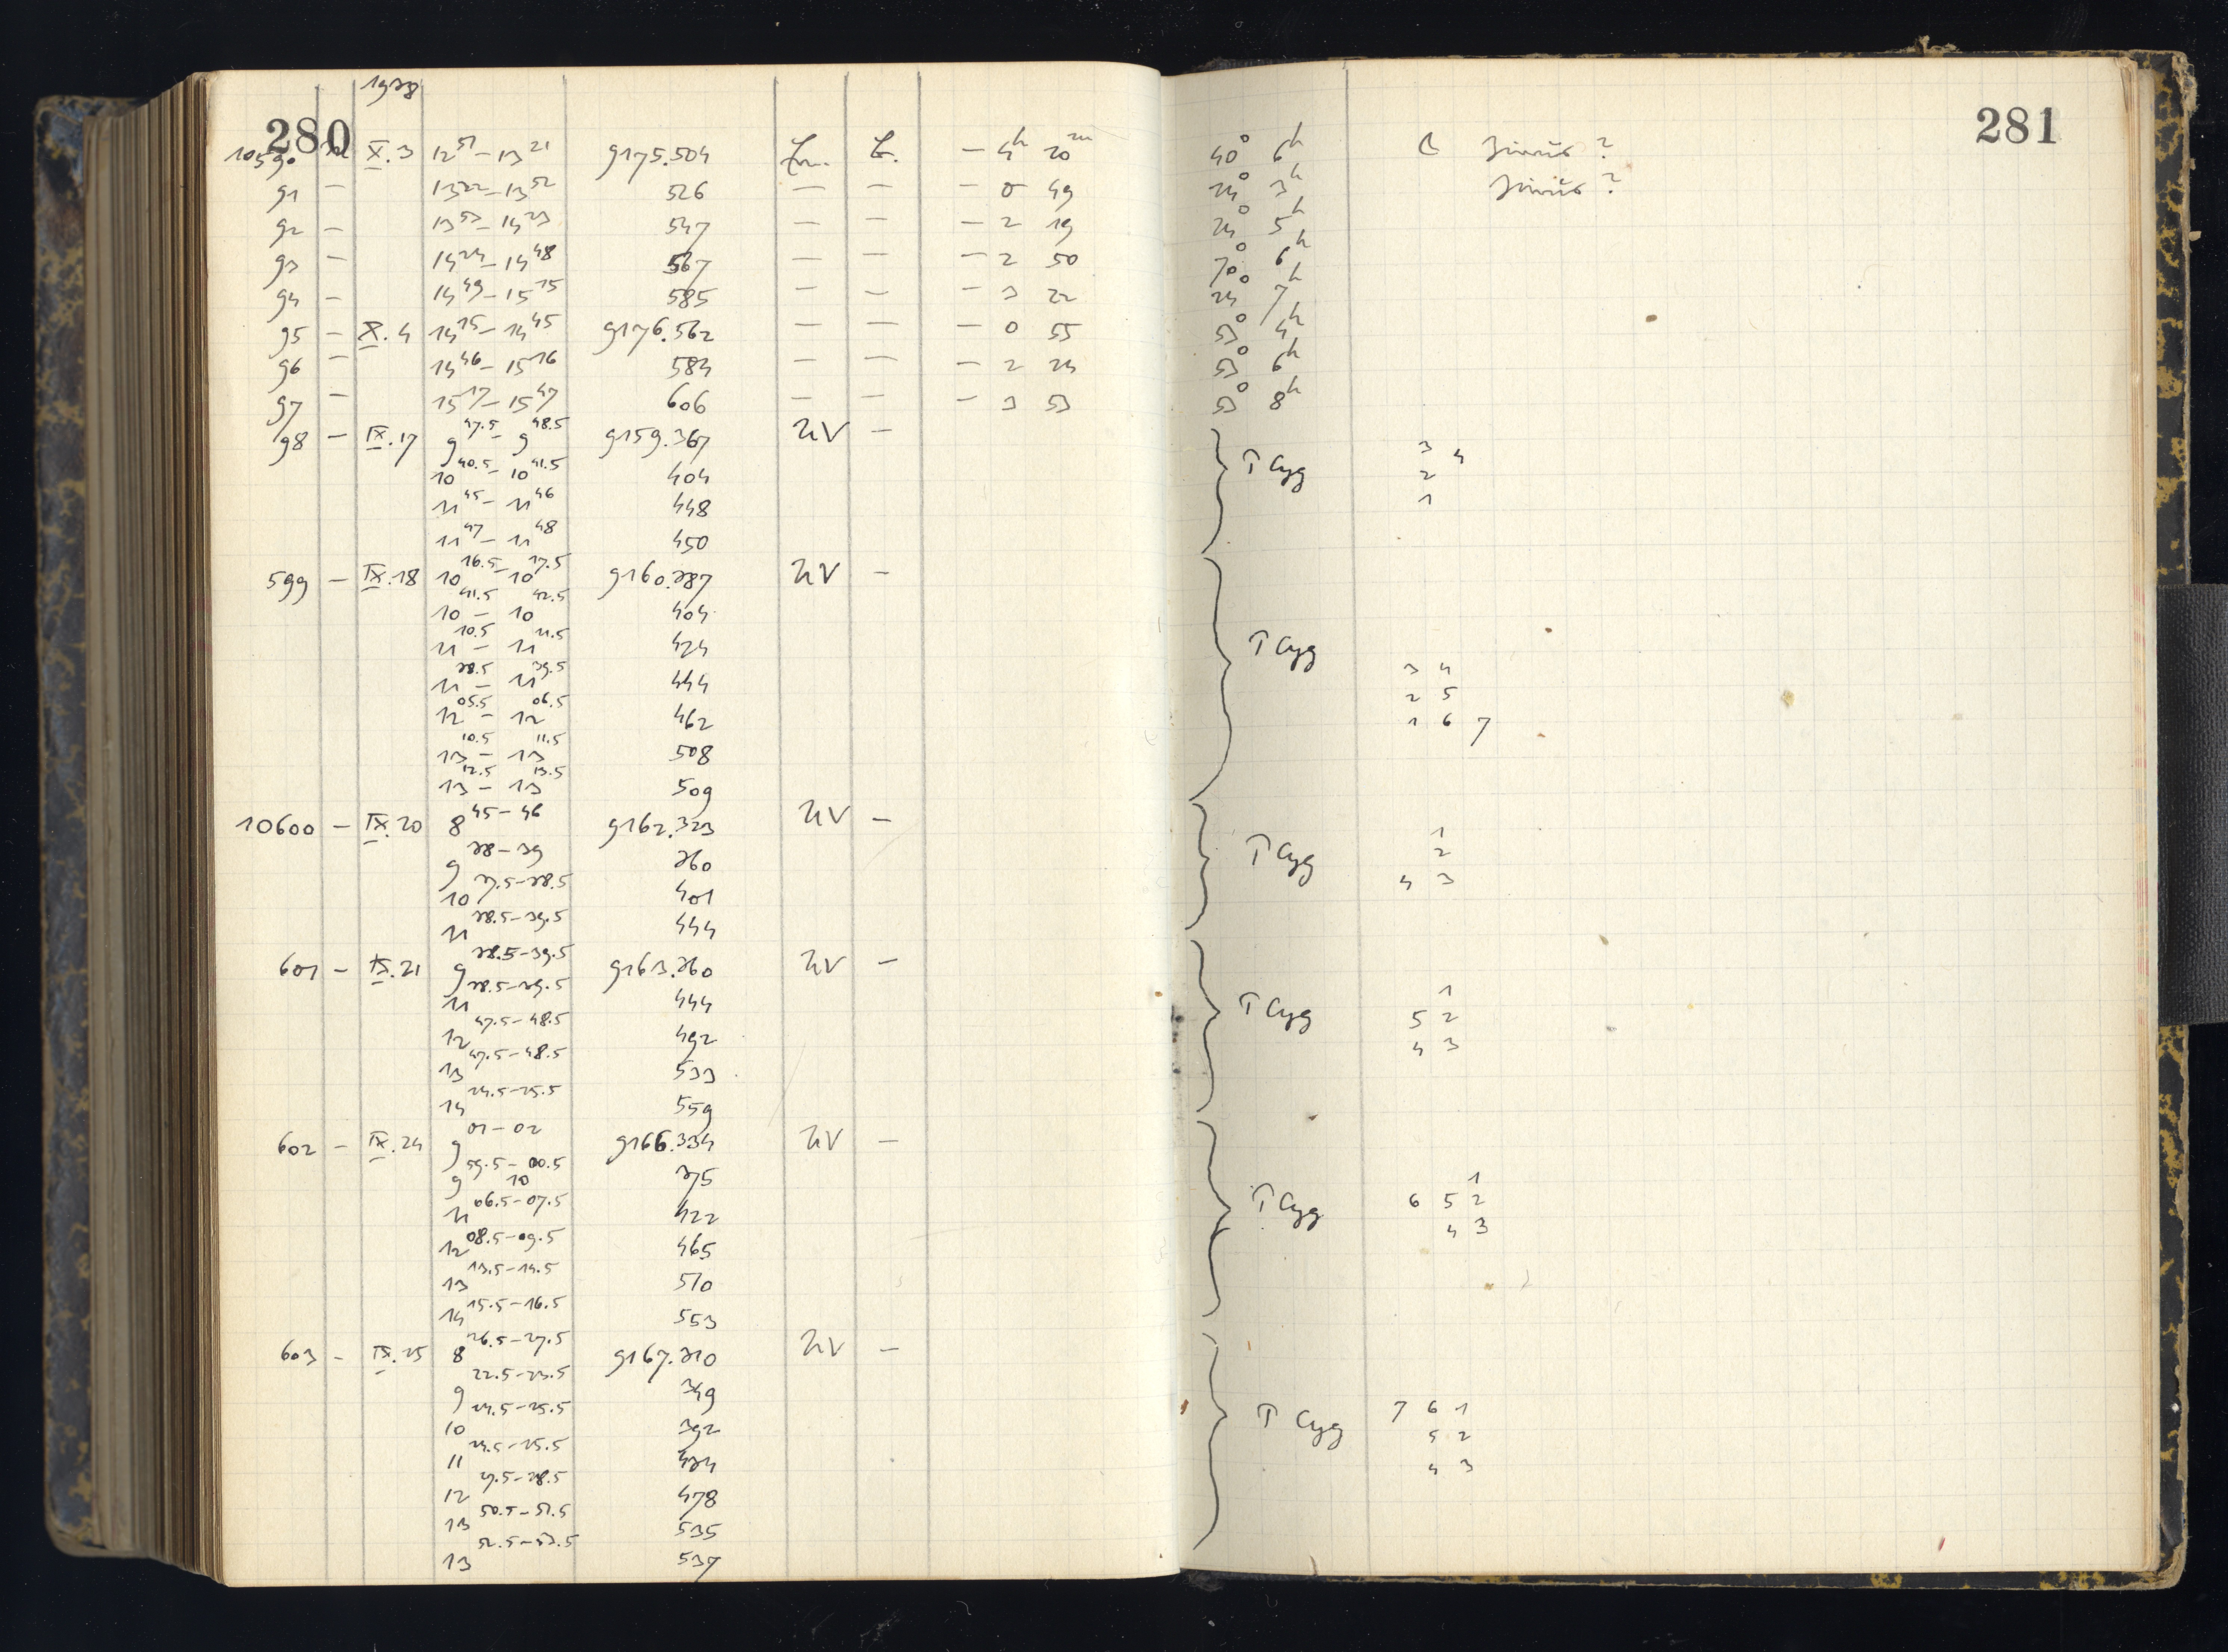 1938
280
281
10590 X.3 12 51 – 13 21 9175.504 — 4h 20m 40° 6h
91 — 13 22 – 13 52 526 — — — 0 49 24° 3h
92 — 13 53 – 14 23 547 — — — 2 19 24° 5h
93 — 14 24 – 14 48 567 — — — 2 50 70° 6h
94 — 14 49 – 15 15 585 — — — 3 22 24° 7h
95 — X.4 14 15 – 14 45 9176.562 — — — 0 55 53° 4h
96 — 14 46 – 15 16 584 — — — 2 24 53° 6h
97 — 15 17 – 15 47 606 — — — 3 53 53° 8h
98 — IX.17 9 47.5 – 9 48.5 9159.367 UV —
10 40.5 – 10 41.5 404
11 45 – 11 46 448
11 47 – 11 48 450
T Cyg
3 4
2
1
599 — IX.18 10 16.5 – 10 17.5 9160.387 UV —
10 41.5 – 10 42.5 404
11 10.5 – 11 11.5 424
11 38.5 – 11 39.5 444
12 05.5 – 12 06.5 462
13 10.5 – 13 11.5 508
13 12.5 – 13 13.5 509
T Cyg
3 4
2 5
1 6 7
10600 — IX.20 8 45 – 46 9162.323 UV —
9 38 – 39 360
10 37.5 – 38.5 401
11 38.5 – 39.5 444
T Cyg
1
2
4 3
601 — IX.21 9 38.5 – 39.5 9163.360 UV —
11 38.5 – 39.5 444
12 47.5 – 48.5 492
13 47.5 – 48.5 533
14 24.5 – 25.5 559
T Cyg
1
5 2
4 3
602 — IX.24 9 01 – 02 9166.334 UV —
9 59.5 – 10 00.5 375
11 06.5 – 07.5 422
12 08.5 – 09.5 465
13 13.5 – 14.5 510
14 15.5 – 16.5 553
T Cyg
1
6 5 2
4 3
603 — IX.25 8 26.5 – 27.5 9167.310 UV —
9 22.5 – 23.5 349
10 24.5 – 25.5 392
11 24.5 – 25.5 434
12 27.5 – 28.5 478
13 50.5 – 51.5 535
13 52.5 – 53.5 537
T Cyg
7 6 1
5 2
4 3